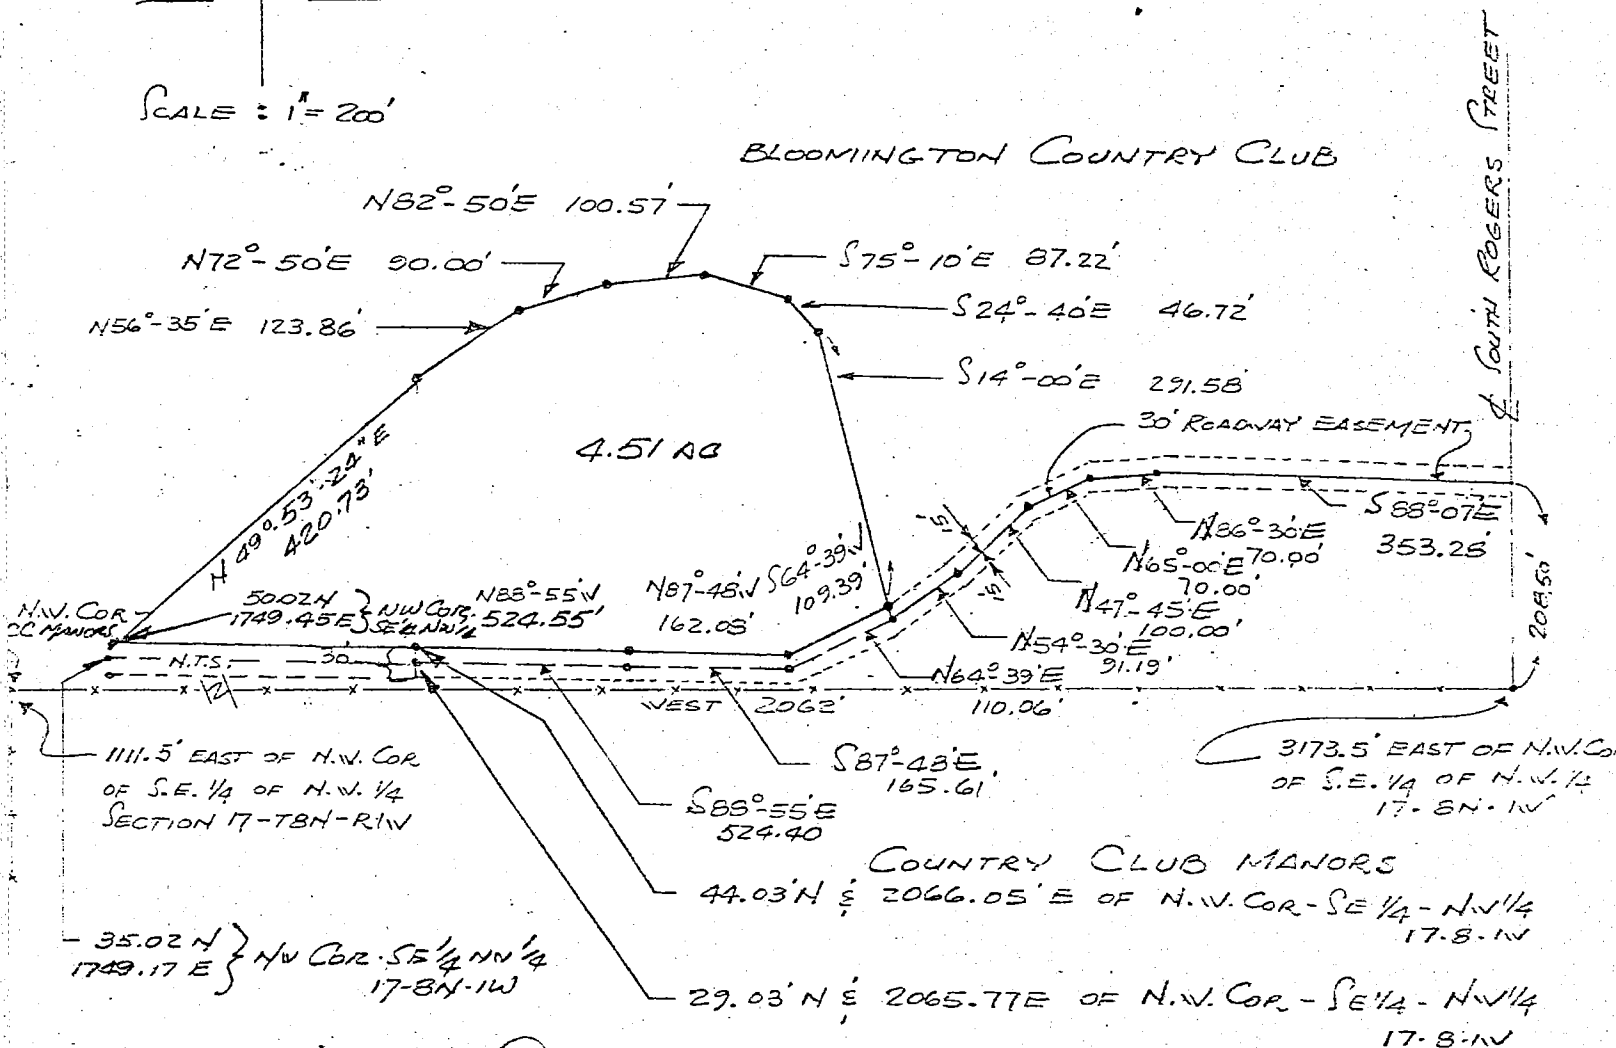 SCALE : 1" = 200'
BLOOMINGTON COUNTRY CLUB
℄ SOUTH ROGERS STREET
N82°-50'E 100.57'
N72°-50'E 90.00'
S75°-10'E 87.22'
N56°-35'E 123.86'
S24°-40'E 46.72'
S14°-00'E 291.58'
30' ROADWAY EASEMENT
4.51 AC
N 49°-53'-24" E
420.73'
S 88°-07'E
353.28'
N86°-30'E
70.00'
N65°-00'E
70.00'
N47°-45'E
100.00'
N54°-30'E
91.19'
N64°-39'E
110.06'
15'
15'
208.50'
S64°-39'W
109.39'
N87°-48'W
162.03'
N88°-55'W
524.55'
50.02 N
1749.45 E } NW COR.
SE¼ NW¼
N.W. COR
CC MANORS
N.T.S.
30'
WEST 2062'
1111.5' EAST OF N.W. COR
OF S.E. 1/4 OF N.W. 1/4
SECTION 17-T8N-R1W
S87°-48'E
165.61'
S88°-55'E
524.40
3173.5' EAST OF N.W. CO
OF S.E. 1/4 OF N.W. 1/4
17-8N-1W
COUNTRY CLUB MANORS
44.03'N & 2066.05'E OF N.W. COR - SE 1/4 - NW 1/4
17-8-1W
35.02 N
1749.17 E } NW COR. SE 1/4 NW 1/4
17-8N-1W
29.03'N & 2065.77E OF N.W. COR - SE 1/4 - NW 1/4
17-8-1W